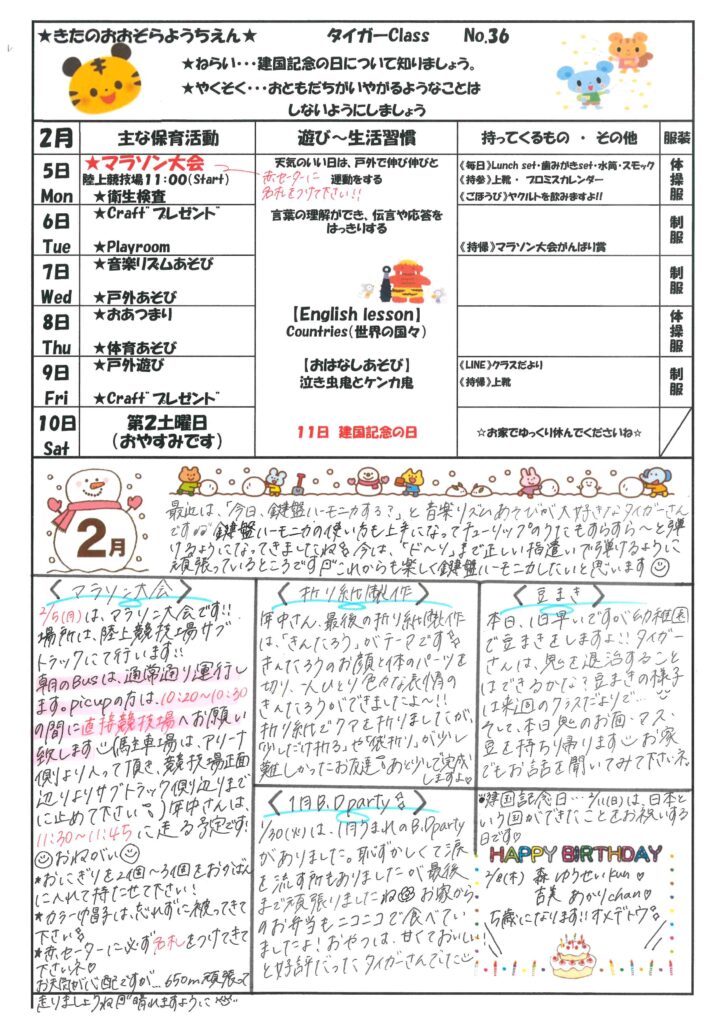 ★きたのおおぞらようちえん★ タイガーClass No.36
★ねらい・・・建国記念の日について知りましょう。
★やくそく・・・おともだちがいやがるようなことは
しないようにしましょう
2月 主な保育活動 遊び〜生活習慣 持ってくるもの ・ その他 服装
5日 Mon
★マラソン大会
陸上競技場11:00(Start)
★衛生検査
天気のいい日は、戸外で伸び伸びと
運動をする
赤セーターに
名札をつけて下さい!!
《毎日》Lunch set・歯みがきset・水筒・スモック
《持参》上靴・ プロミスカレンダー
《ごほうび》ヤクルトを飲みますよ!!
体操服
6日 Tue
★Craftﾞプレゼンドﾞ
★Playroom
言葉の理解ができ、伝言や応答を
はっきりする
《持帰》マラソン大会がんばり賞
制服
7日 Wed
★音楽リズムあそび
★戸外あそび
制服
8日 Thu
★おあつまり
★体育あそび
【English lesson】
Countries(世界の国々)
体操服
9日 Fri
★戸外遊び
★Craftﾞプレゼンドﾞ
【おはなしあそび】
泣き虫鬼とケンカ鬼
《LINE》クラスだより
《持帰》上靴
制服
10日 Sat
第2土曜日
(おやすみです)
11日 建国記念の日
☆お家でゆっくり休んでくださいね☆
2月
最近は、「今日、鍵盤ハーモニカする?」と音楽リズムあそびが大好きなタイガーさん
です 鍵盤ハーモニカの使い方も上手になってチューリップのうたもすらすら〜と弾
けるようになってきましたね 今は、「ド〜ソ」まで正しい指遣いで弾けるように
頑張っているところです これからも楽しく鍵盤ハーモニカしたいと思います
<マラソン大会>
2/5(月)は、マラソン大会です!!
場所は、陸上競技場サブ
トラックにて行います!!
朝のBusは、通常通り運行し
ます。picupの方は、10:20〜10:30
の間に直接競技場へお願い
致します (駐車場は、アリーナ
側より入って頂き、競技場正面
辺りよりサブトラック側辺りまで
に止めて下さい) 年中さんは、
11:30〜11:45に走る予定です!
おねがい
*おにぎりを2個〜3個をおかばん
に入れて持たせて下さい!
*カラー帽子は、忘れずに被ってきて
下さい
*赤セーターに必ず名札をつけてきて
下さいネ♡
お天気が心配ですが…650m頑張って
走りましょうね 晴れますように
<折り紙製作>
年中さん、最後の折り紙製作
は、「きんたろう」がテーマです
きんたろうのお顔と体のパーツを
切り、一人ひとり色々な表情の
きんたろうができましたよ〜!!
折り紙でクマを折りましたが、
「少しだけ折る」や「袋折り」が少し
難しかったお友達 あと少しで完成
しますよ♡
<豆まき>
本日、1日早いですが幼稚園
で豆まきをしますよ!! タイガー
さんは、鬼を退治すること
はできるかな? 豆まきの様子
は来週のクラスだよりで…
そして、本日鬼のお面・マス、
豆を持ち帰ります お家
でもお話を聞いてみて下さいネ。
<1月B.Dparty>
1/30(火)は、1月うまれのB.Dparty
がありました。恥ずかしくて涙
を流す所もありましたが最後
まで頑張りましたね お家から
のお弁当もニコニコで食べてい
ましたよ! おやつは、甘くておいしい
と好評だったタイガーさんでした
*建国記念日…2/11(日)は、日本と
いう国ができたことをお祝いする
日です♡
HAPPY BiRTHDAY
2/8(木) 森 ゆうせいkun♡
吉美 あかりchan♡
5歳になります!! オメデトウ